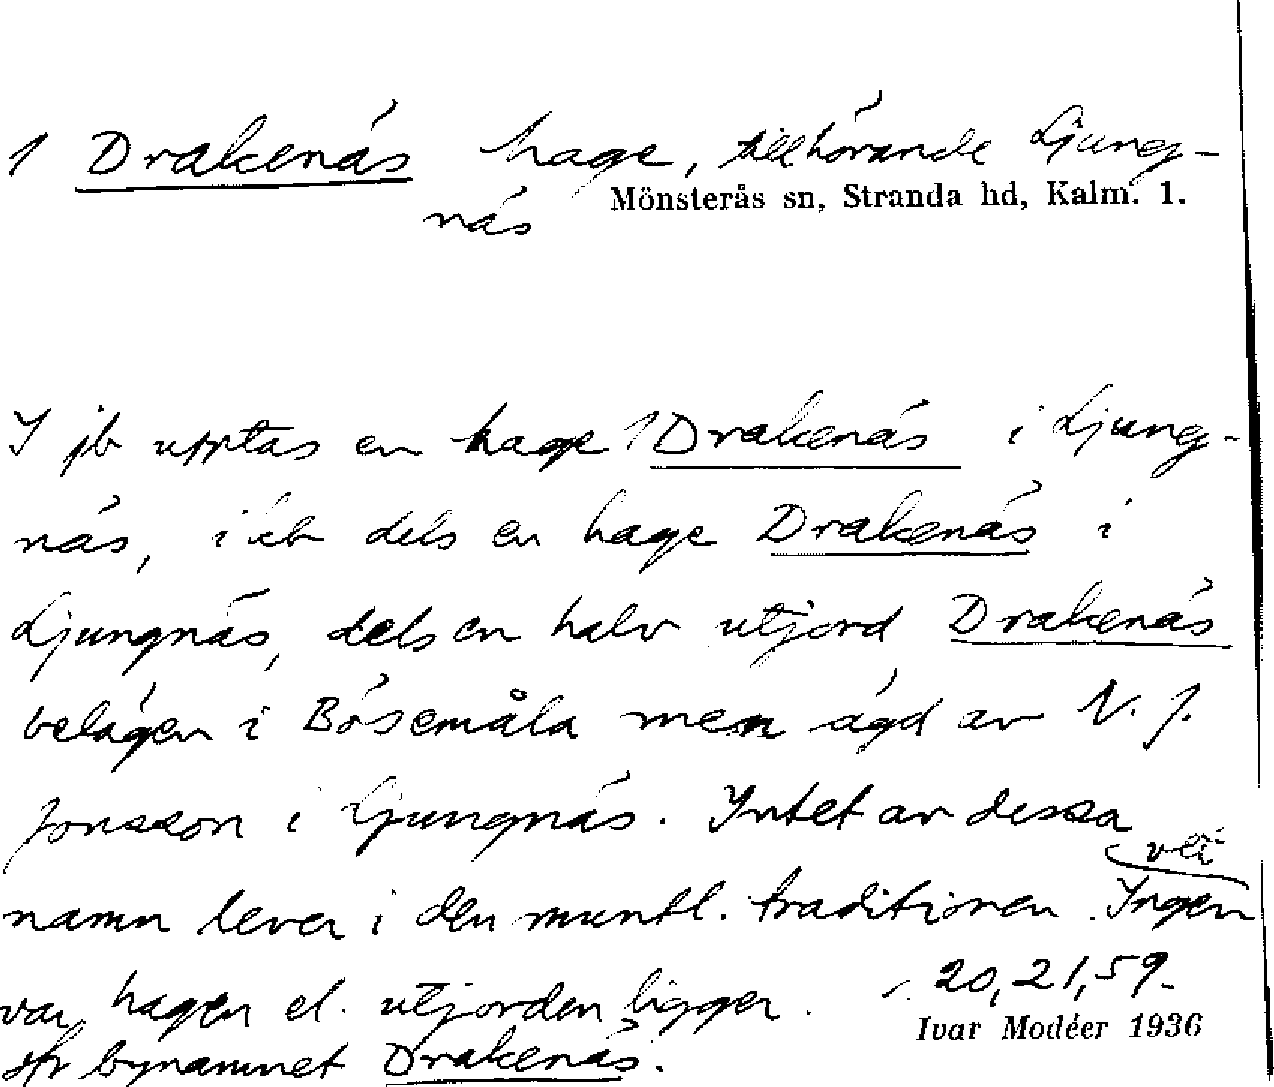 1 Drakenäs hage, tillhörande Ljung-
näs Mönsterås sn, Stranda hd, Kalm. l.
I jb upptas en hage 1 Drakenäs i Ljung-
näs, i dels en hage Drakenäs i
Ljungnäs, dels en halv utjord Drakenäs
belägen i Bösemåla men ägd av N. J.
Jonsson i Ljungnäs. Intet av dessa
namn lever i den muntl. traditionen. Ingen vet
var hagen el. utjorden ligger. 20, 21, 59.
Ivar Modéer 1936
Jfr bynamnet Drakenäs.